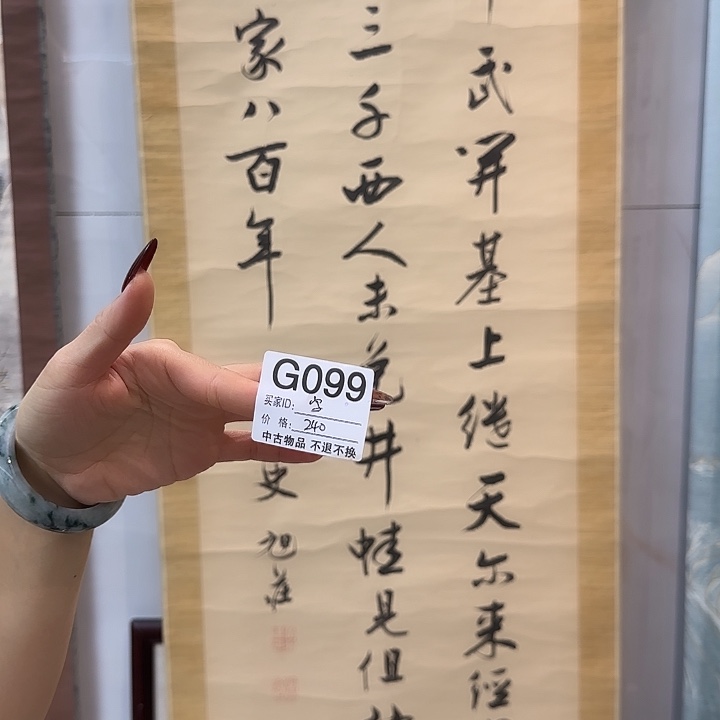 武開基上繼天尓来經
三千西人未免井蛙見但
家八百年
史 旭莊
G099
买家ID:
价 格: 240
中古物品 不退不换